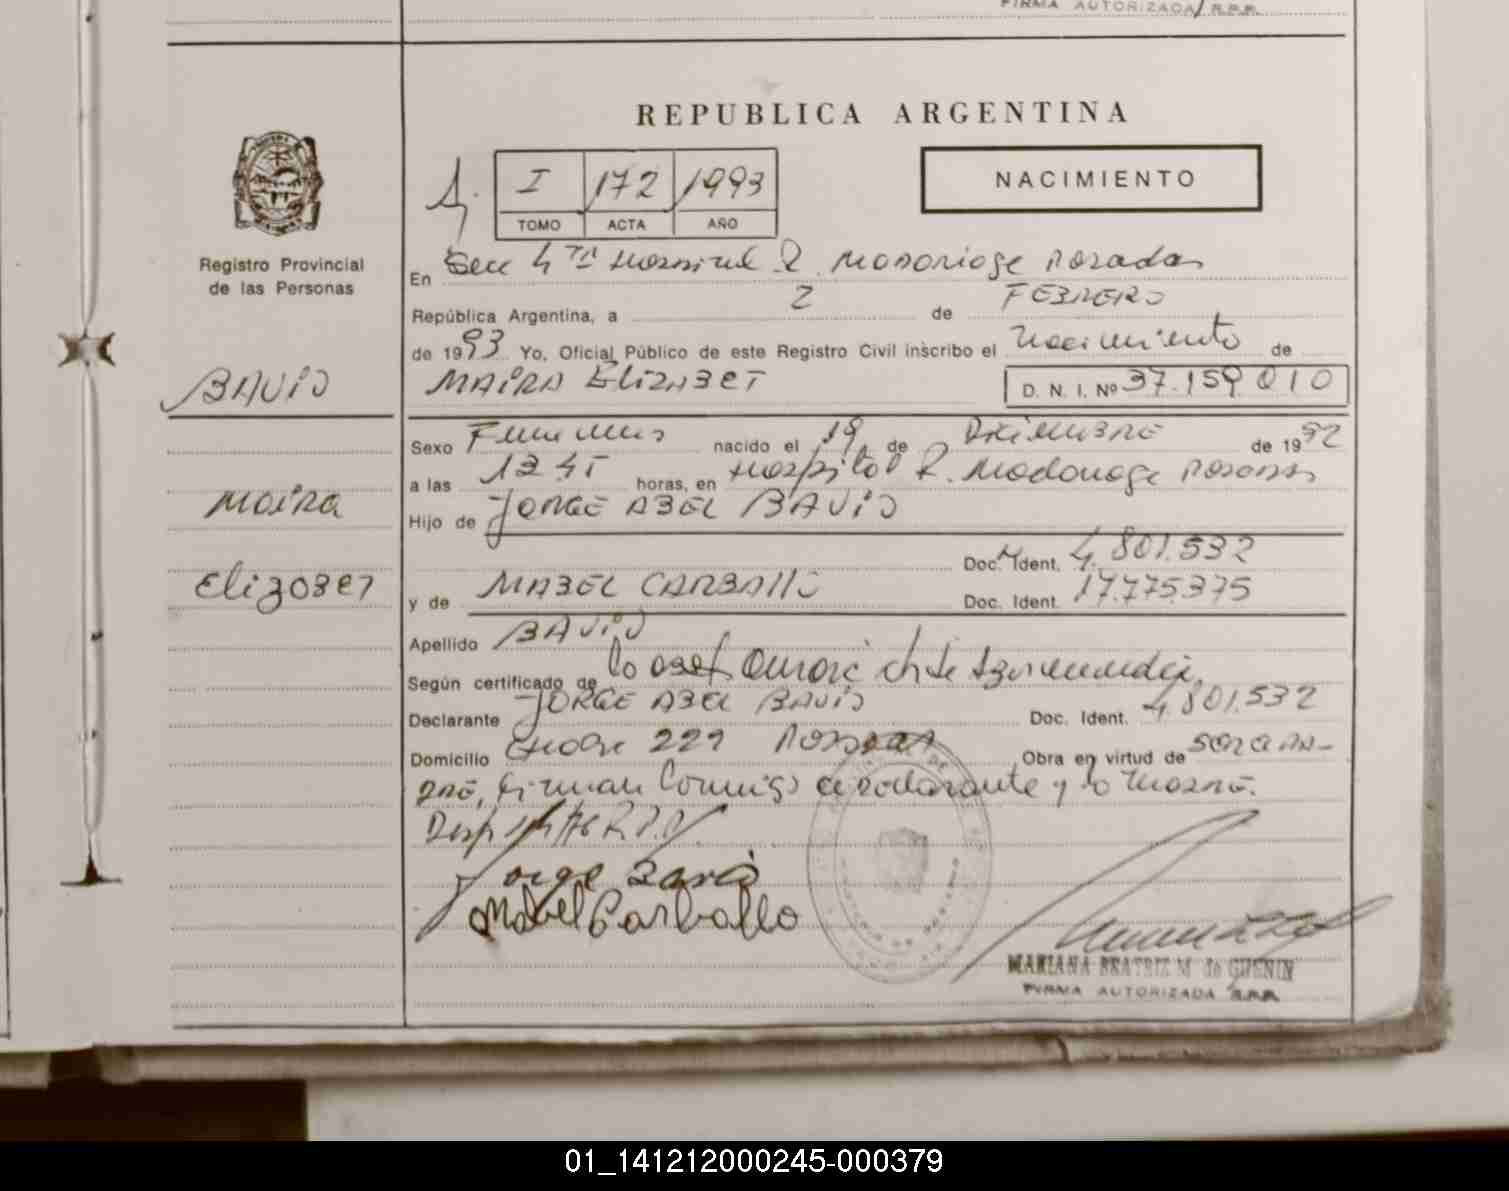 FIRMA AUTORIZADA R.P.P.
REPUBLICA ARGENTINA
I 172 1993
TOMO ACTA AÑO
NACIMIENTO
Registro Provincial
de las Personas
En Secc 4ta Hospital R. Madariaga Posadas
República Argentina, a 2 de FEBRERO
de 1993 Yo, Oficial Público de este Registro Civil inscribo el Nacimiento de
BAVIO
MAIRA ELIZABET D. N. I. Nº 37.159.010
Sexo Femenino nacido el 19 de Diciembre de 1992
a las 12 45 horas, en Hospital R. Madariaga Posadas
Maira
Hijo de JORGE ABEL BAVIO
Doc. Ident. 4.801.532
Elizabet
y de MABEL CARBALLO Doc. Ident. 17.775.375
Apellido BAVIO
Según certificado de la
Declarante JORGE ABEL BAVIO Doc. Ident. 4.801.532
Domicilio 229 Posadas Obra en virtud de
firman conmigo el declarante y la madre.
Jorge Bavio
Mabel Carballo
MARIANA BEATRIZ M. de GUENIN
FIRMA AUTORIZADA R.P.P.
01_141212000245-000379